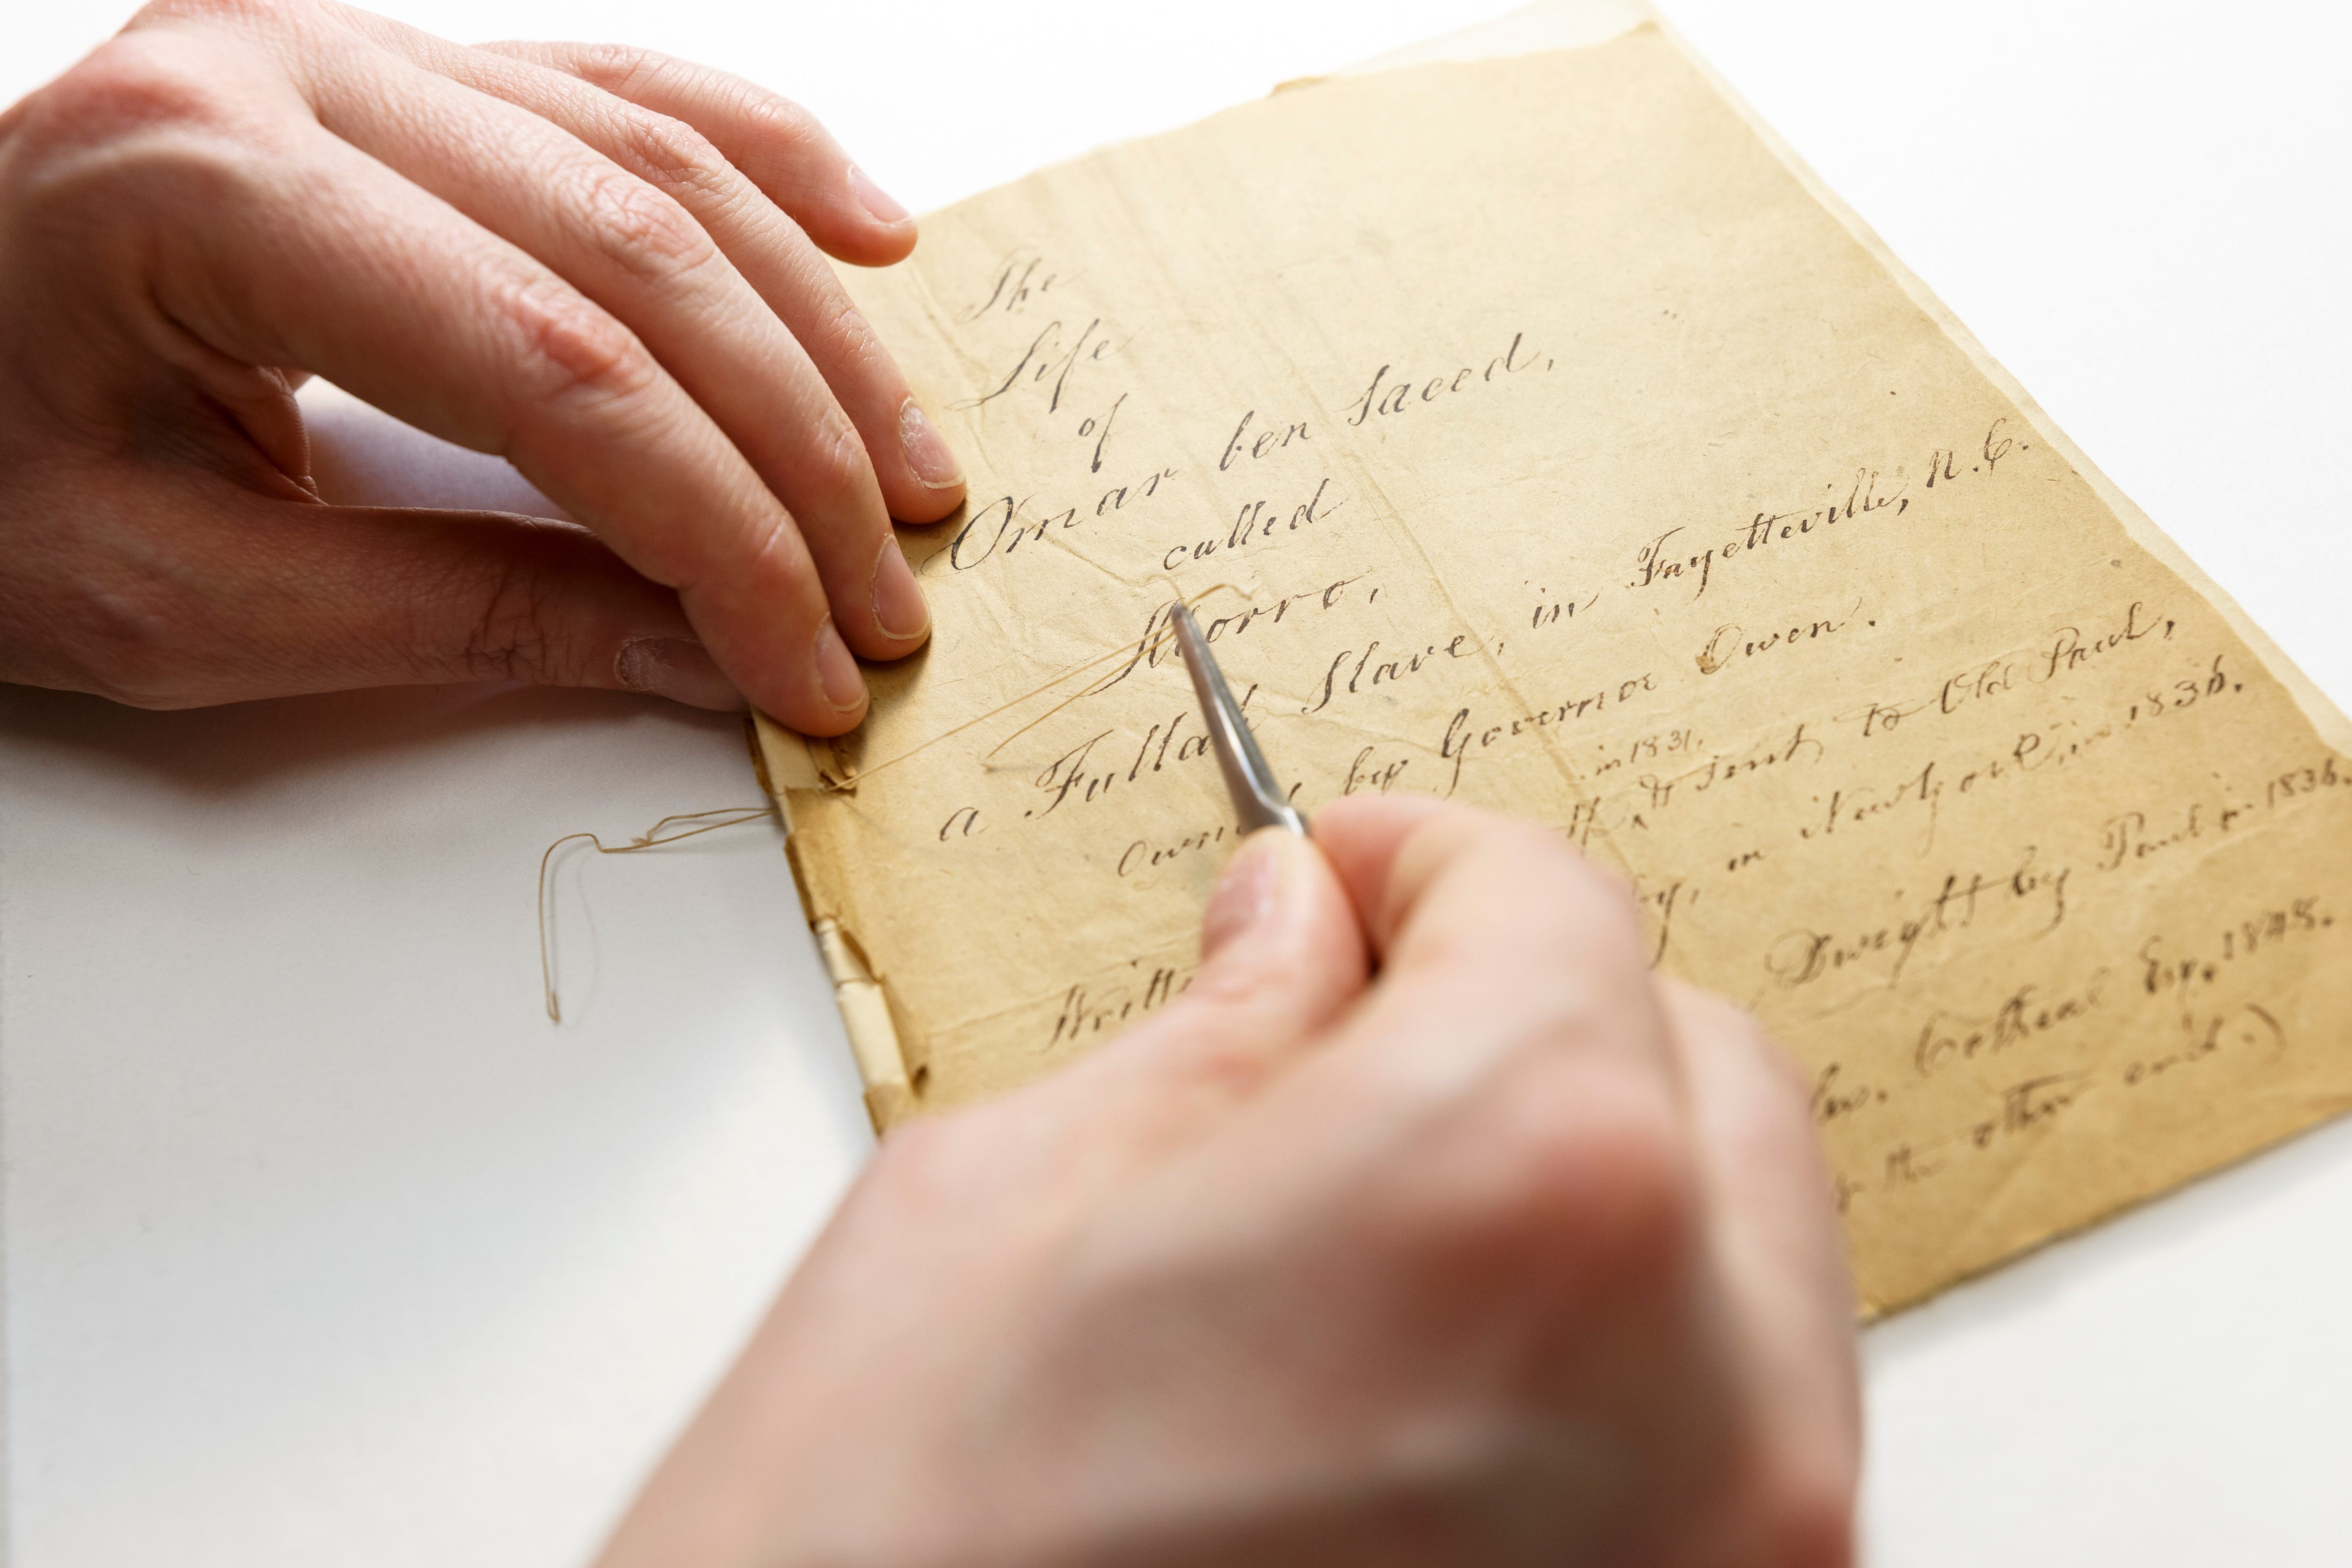 The
Life
of
Omar ben Saeed,
called
Morro,
a Fullah Slave, in Fayetteville, N.C.
Owned by Governor Owen.
in 1831, & sent to Old Paul,
in Newyork, in 1836.
Dwight by Paul in 1836.
Cotheal Esq. 1848.
the other end.)